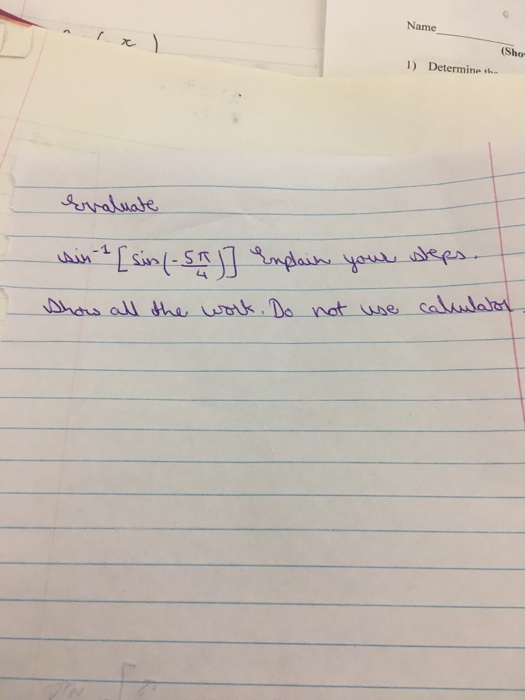 ( x )
Name
(Sho
1) Determine
Evaluate
sin⁻¹ [sin(-5π/4)] Explain your steps.
Show all the work. Do not use calculator.